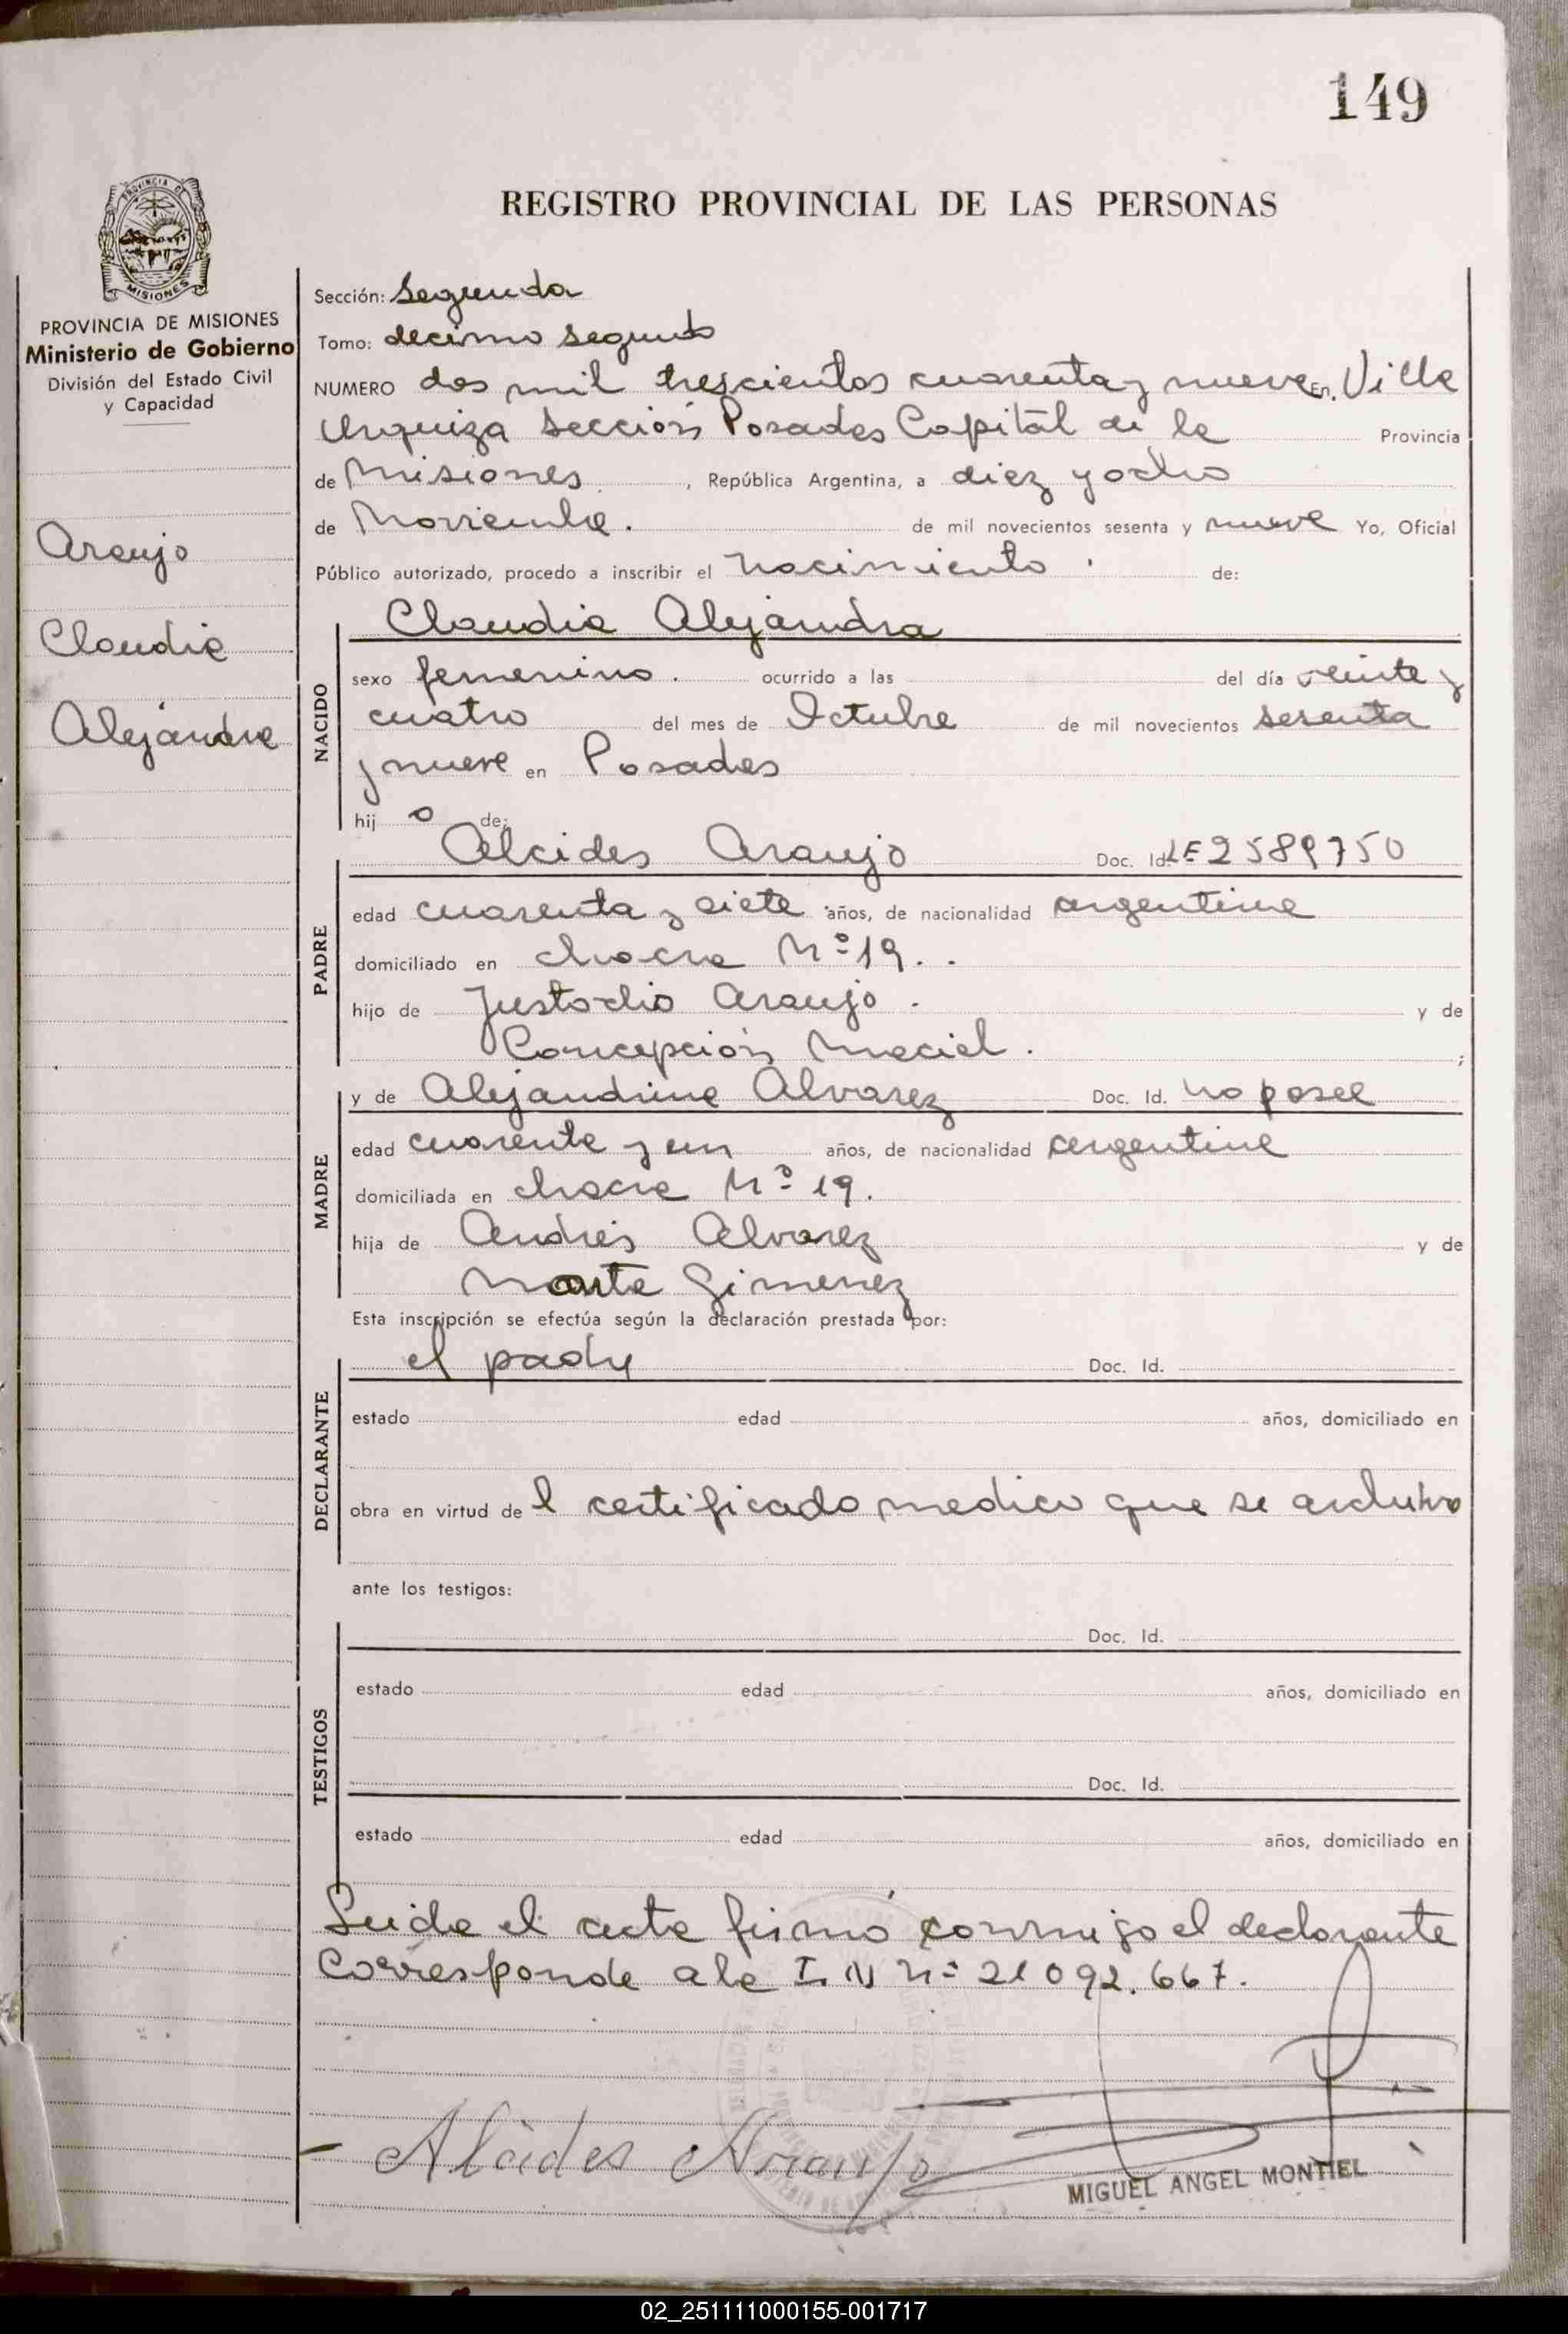 149
REGISTRO PROVINCIAL DE LAS PERSONAS
PROVINCIA DE MISIONES
Ministerio de Gobierno
División del Estado Civil
y Capacidad
Araujo
Claudia
Alejandra
Sección: Segunda
Tomo: decimo segundo
NUMERO dos mil trescientos cuarenta y nueve En, Villa
Urquiza Sección Posadas Capital de la Provincia
de Misiones, República Argentina, a diez y ocho
de Noviembre. de mil novecientos sesenta y nueve Yo, Oficial
Público autorizado, procedo a inscribir el nacimiento de:
Claudia Alejandra
NACIDO
sexo femenino. ocurrido a las del día veinte y
cuatro del mes de Octubre de mil novecientos sesenta
y nueve en Posadas
hij o de:
PADRE
Alcides Araujo Doc. Id. LE 2589750
edad cuarenta y siete años, de nacionalidad argentina
domiciliado en chacra Nº 19.
hijo de Justodio Araujo. y de
Concepción Maciel. ;
MADRE
y de Alejandrina Alvarez Doc. Id. no posee
edad cuarenta y un años, de nacionalidad argentina
domiciliada en chacra Nº 19.
hija de Andrés Alvarez y de
Marta Gimenez
Esta inscripción se efectúa según la declaración prestada por:
DECLARANTE
el padre Doc. Id.
estado edad años, domiciliado en
obra en virtud de l certificado medico que se archivo
ante los testigos:
TESTIGOS
Doc. Id.
estado edad años, domiciliado en
Doc. Id.
estado edad años, domiciliado en
Leida el acta firmó conmigo el declarante
Corresponde a la I. N nº 21 092.667.
Alcides Araujo
MIGUEL ANGEL MONTIEL
02_251111000155-001717